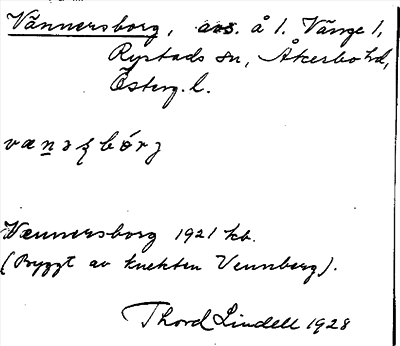 Vännersborg, avs. å l. Vänge 1,
Rystads sn, Åkerbo hd,
Österg. l.
Vennersborg 1921 kb.
(Byggt av knekten Vennberg).
Thord Lindell 1928